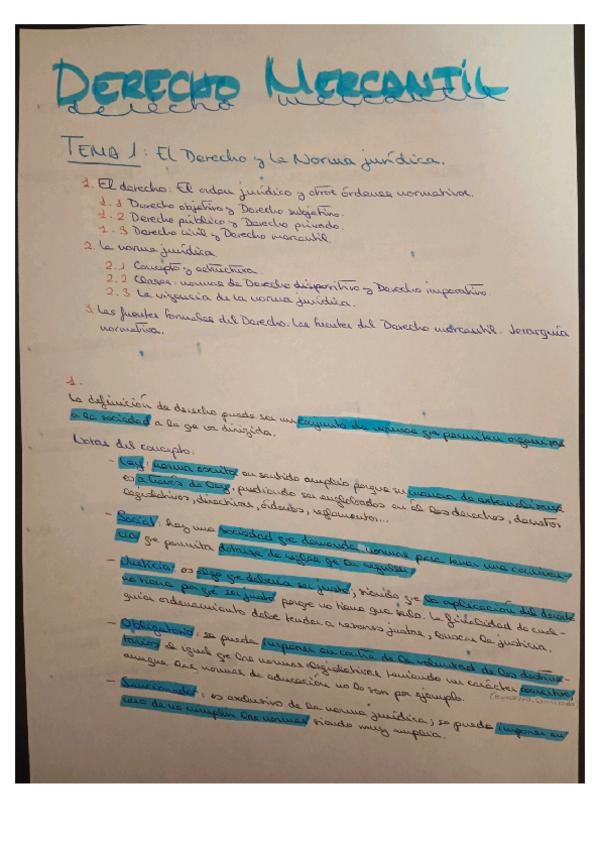 DERECHO MERCANTIL
derecho mercantil
TEMA 1: El Derecho y la Norma jurídica.
1. El derecho: El orden jurídico y otros órdenes normativos.
1.1 Derecho objetivo y Derecho subjetivo.
1.2 Derecho público y Derecho privado.
1.3 Derecho civil y Derecho mercantil
2. La norma jurídica
2.1 Concepto y estructura.
2.2 Clases: normas de Derecho dispositivo y Derecho imperativo
2.3 La vigencia de la norma jurídica.
3. Las fuentes formales del Derecho. Las fuentes del Derecho mercantil. Jerarquía
normativa.
1.
La definición de derecho puede ser un conjunto de normas qe permiten organizar
a la sociedad a la qe va dirigida.
Notas del concepto:
- Ley: norma escrita en sentido amplio porque su manera de externalizarse
es a través de , pudiendo ser englobados en él los derechos, decretos
legislativos, directivas, órdenes, reglamentos...
- Social: hay una sociedad qe demanda normas para tener una conviven-
cia qe permita dotarse de reglas qe la regulen.
- Justicia: es algo qe debería ser justo, siendo qe la aplicación del derecho
no tiene por qé ser justo porqe no tiene qe serlo. La finalidad de cual-
quier ordenamiento debe tender a razones justas, buscar la justicia.
- Obligatorio: se puede imponer en contra de la voluntad de los destina-
tarios al igual qe las normas legislativas teniendo un carácter coercitivo,
aunque las normas de educación no lo son por ejemplo.
- Sancionador: es exclusivo de la norma jurídica; se puede imponer en
caso de no cumplir las normas siendo muy amplia.